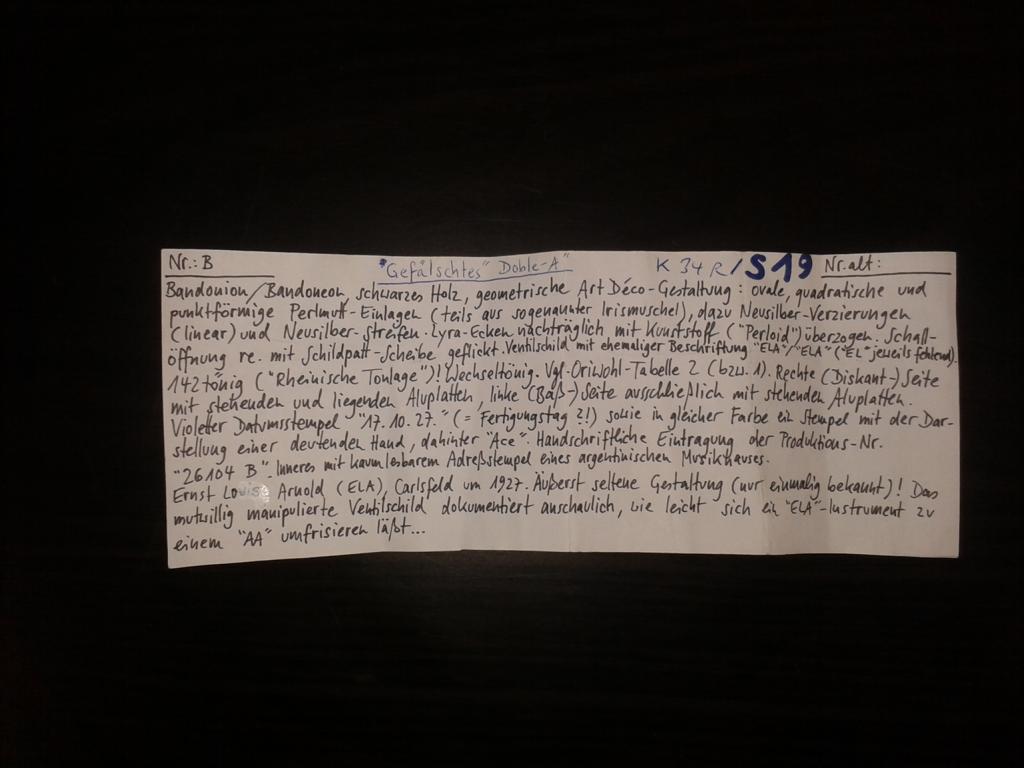 Nr.: B "Gefälschtes" Doble-A" K 34 R/S19 Nr. alt:
Bandonion/Bandoneon, schwarzes Holz, geometrische Art Déco-Gestaltung: ovale, quadratische und
punktförmige Perlmutt-Einlagen (teils aus sogenannter Irismuschel), dazu Neusilber-Verzierungen
(linear) und Neusilber-Streifen. Lyra-Ecken nachträglich mit Kunststoff ("Perloid") überzogen. Schall-
öffnung re. mit Schildpatt-Scheibe geflickt. Ventilschild mit ehemaliger Beschriftung "ELA"/"ELA" ("EL" jeweils fehlend).
142tönig ("Rheinische Tonlage")! Wechseltönig. Vgl. Oriwohl-Tabelle 2 (bzw. 1). Rechte (Diskant-)Seite
mit stehenden und liegenden Aluplatten, linke (Baß-)Seite ausschließlich mit stehenden Aluplatten.
Violetter Datumsstempel "17.10.27." (= Fertigungstag?!) sowie in gleicher Farbe ein Stempel mit der Dar-
stellung einer deutenden Hand, dahinter "Ace". Handschriftliche Eintragung der Produktions-Nr.
"26104 B". Inneres mit kaum lesbarem Adreßstempel eines argentinischen Musikhauses.
Ernst Louis Arnold (ELA), Carlsfeld um 1927. Äußerst seltene Gestaltung (nur einmalig bekannt)! Das
mutwillig manipulierte Ventilschild dokumentiert anschaulich, wie leicht sich ein "ELA"-Instrument zu
einem "AA" umfrisieren läßt...